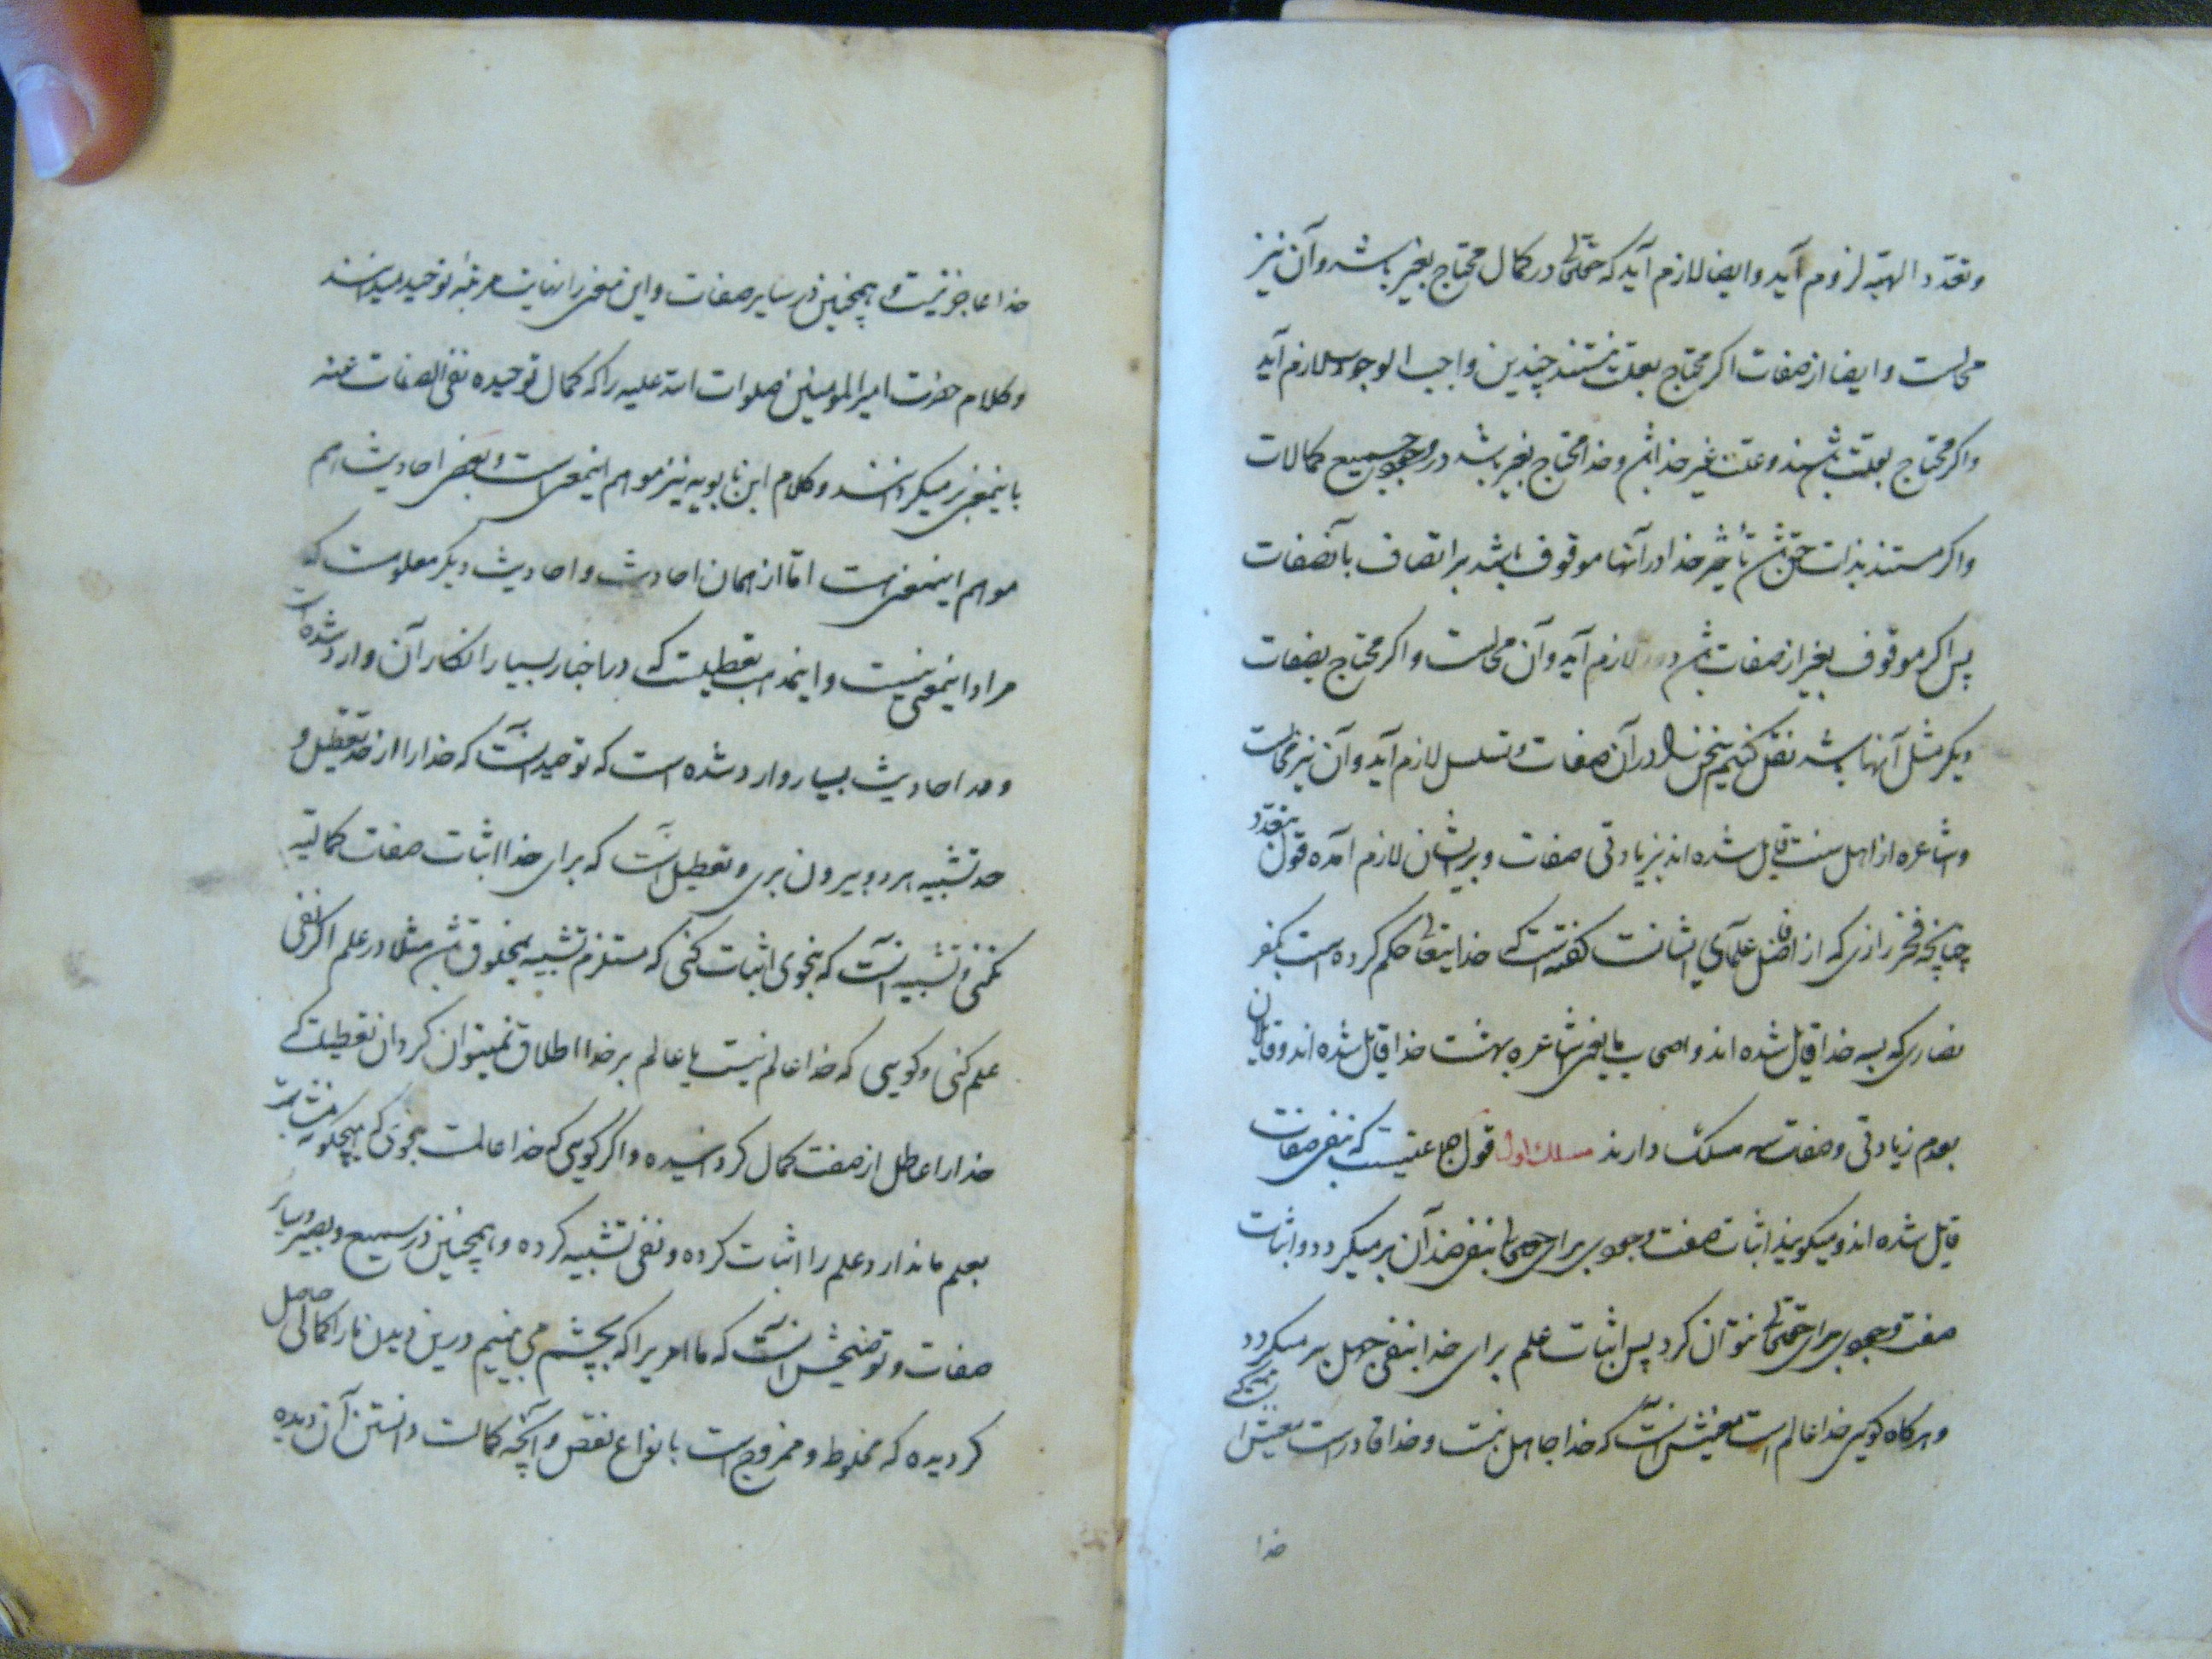 و تعدد الهیه لزوم آید و ایضا لازم آید که حقتعالی در کمال محتاج بغیر باشد و آن نیز
محالست و ایضا از صفات اگر محتاج بعلت نیستند چندین واجب الوجود لازم آید
و اگر محتاج بعلت باشند و علت غیر خدا باشد و خدا محتاج بغیر باشد در وجود جمیع کمالات
و اگر مستند بذات حق باشد تأثیر خدا در آنها موقوف باشد بر اتصاف بآنصفات
پس اگر موقوف بغیر از صفات باشد دور لازم آید و آن محالست و اگر محتاج بصفات
دیگر مثل آنها باشد نقل کنیم سخن را در آن صفات و تسلسل لازم آید و آن نیز محالست
و اشاعره از اهل سنت قایل شده اند بزیادتی صفات و بریشان لازم آمده قول بتعدد
چنانچه فخر رازی که از افاضل علمآی ایشانست گفته است که خدایتعالی حکم کرده است بکفر
نصاری که بسه خدا قایل شده اند و اصحاب ما یعنی اشاعره بهشت خدا قایل شده اند و قایلان
بعدم زیادتی صفات سه مسلک دارند مسلک اول قول جماعتیست که بنفی صفات
قایل شده اند و میگویند اثبات صفت وجودی برای حقتعالی بنفی ضد آن بر میگردد و اثبات
صفت وجودی برای حقتعالی نتوان کرد پس اثبات علم برای خدا بنفی جهل بر میگردد
و هرگاه گویی خدا عالم است معنیش آنست که خدا جاهل نیست و خدا قادر است معنیش آنست که
خدا
خدا عاجز نیست و همچنین در سایر صفات و این معنی را نهایت مرتبهٔ توحید میدانند
و کلام حضرت امیرالمومنین صلوات الله علیه را که کمال توحیده نفی الصفات عنه
باینمعنی بر میگردانند و کلام ابن بابویه نیز موهم اینمعنی است و بعضی احادیث هم
موهم اینمعنی هست اما از همان احادیث و احادیث دیگر معلومست که
مراد اینمعنی نیست و اینمذهب تعطیلست که در اخبار بسیار انکار آن وارد شده است
و در احادیث بسیار وارد شده است که توحید آنست که خدا را از حد تعطیل و
حد تشبیه هر دو بیرون بری و تعطیل آنست که برای خدا اثبات صفات کمالیه
نکنی و تشبیه آنست که بنحوی اثبات کنی که مستلزم تشبیه بمخلوق باشد مثلا در علم اگر نفی
علم کنی و گویی که خدا عالم نیست یا عالم بر خدا اطلاق نمیتوان کرد آن تعطیلست که
خدا را عاطل از صفت کمال گردانیده و اگر گویی که خدا عالمست بنحوی که بهیچگونه مشابهت
بعلم ما ندارد علم را اثبات کرده و نفی تشبیه کرده و همچنین در سمیع و بصیر و سایر
صفات و توضیحش آنست که ما امریرا که بچشم می بینیم درین دیدن ما را کمالی حاصل
گردیده که مخلوط و ممزوج است با نواع نقص و آنچه کمالست دانستن آن دیده